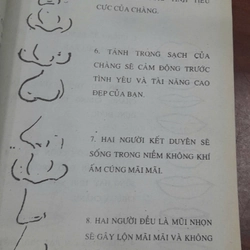 CỰC CỦA CHÀNG.
6. TÁNH TRONG SẠCH CỦA
CHÀNG SẼ CẢM ĐỘNG TRƯỚC
TÌNH YÊU VÀ TÀI NĂNG CAO
ĐẸP CỦA BẠN.
7. HAI NGƯỜI KẾT DUYÊN SẼ
SỐNG TRONG NIỀM KHÔNG KHÍ
ẤM CÚNG MÃI MÃI.
8. HAI NGƯỜI ĐỀU LÀ MŨI NHỌN
SẼ GÂY LỘN MÃI MÃI VÀ KHÔNG